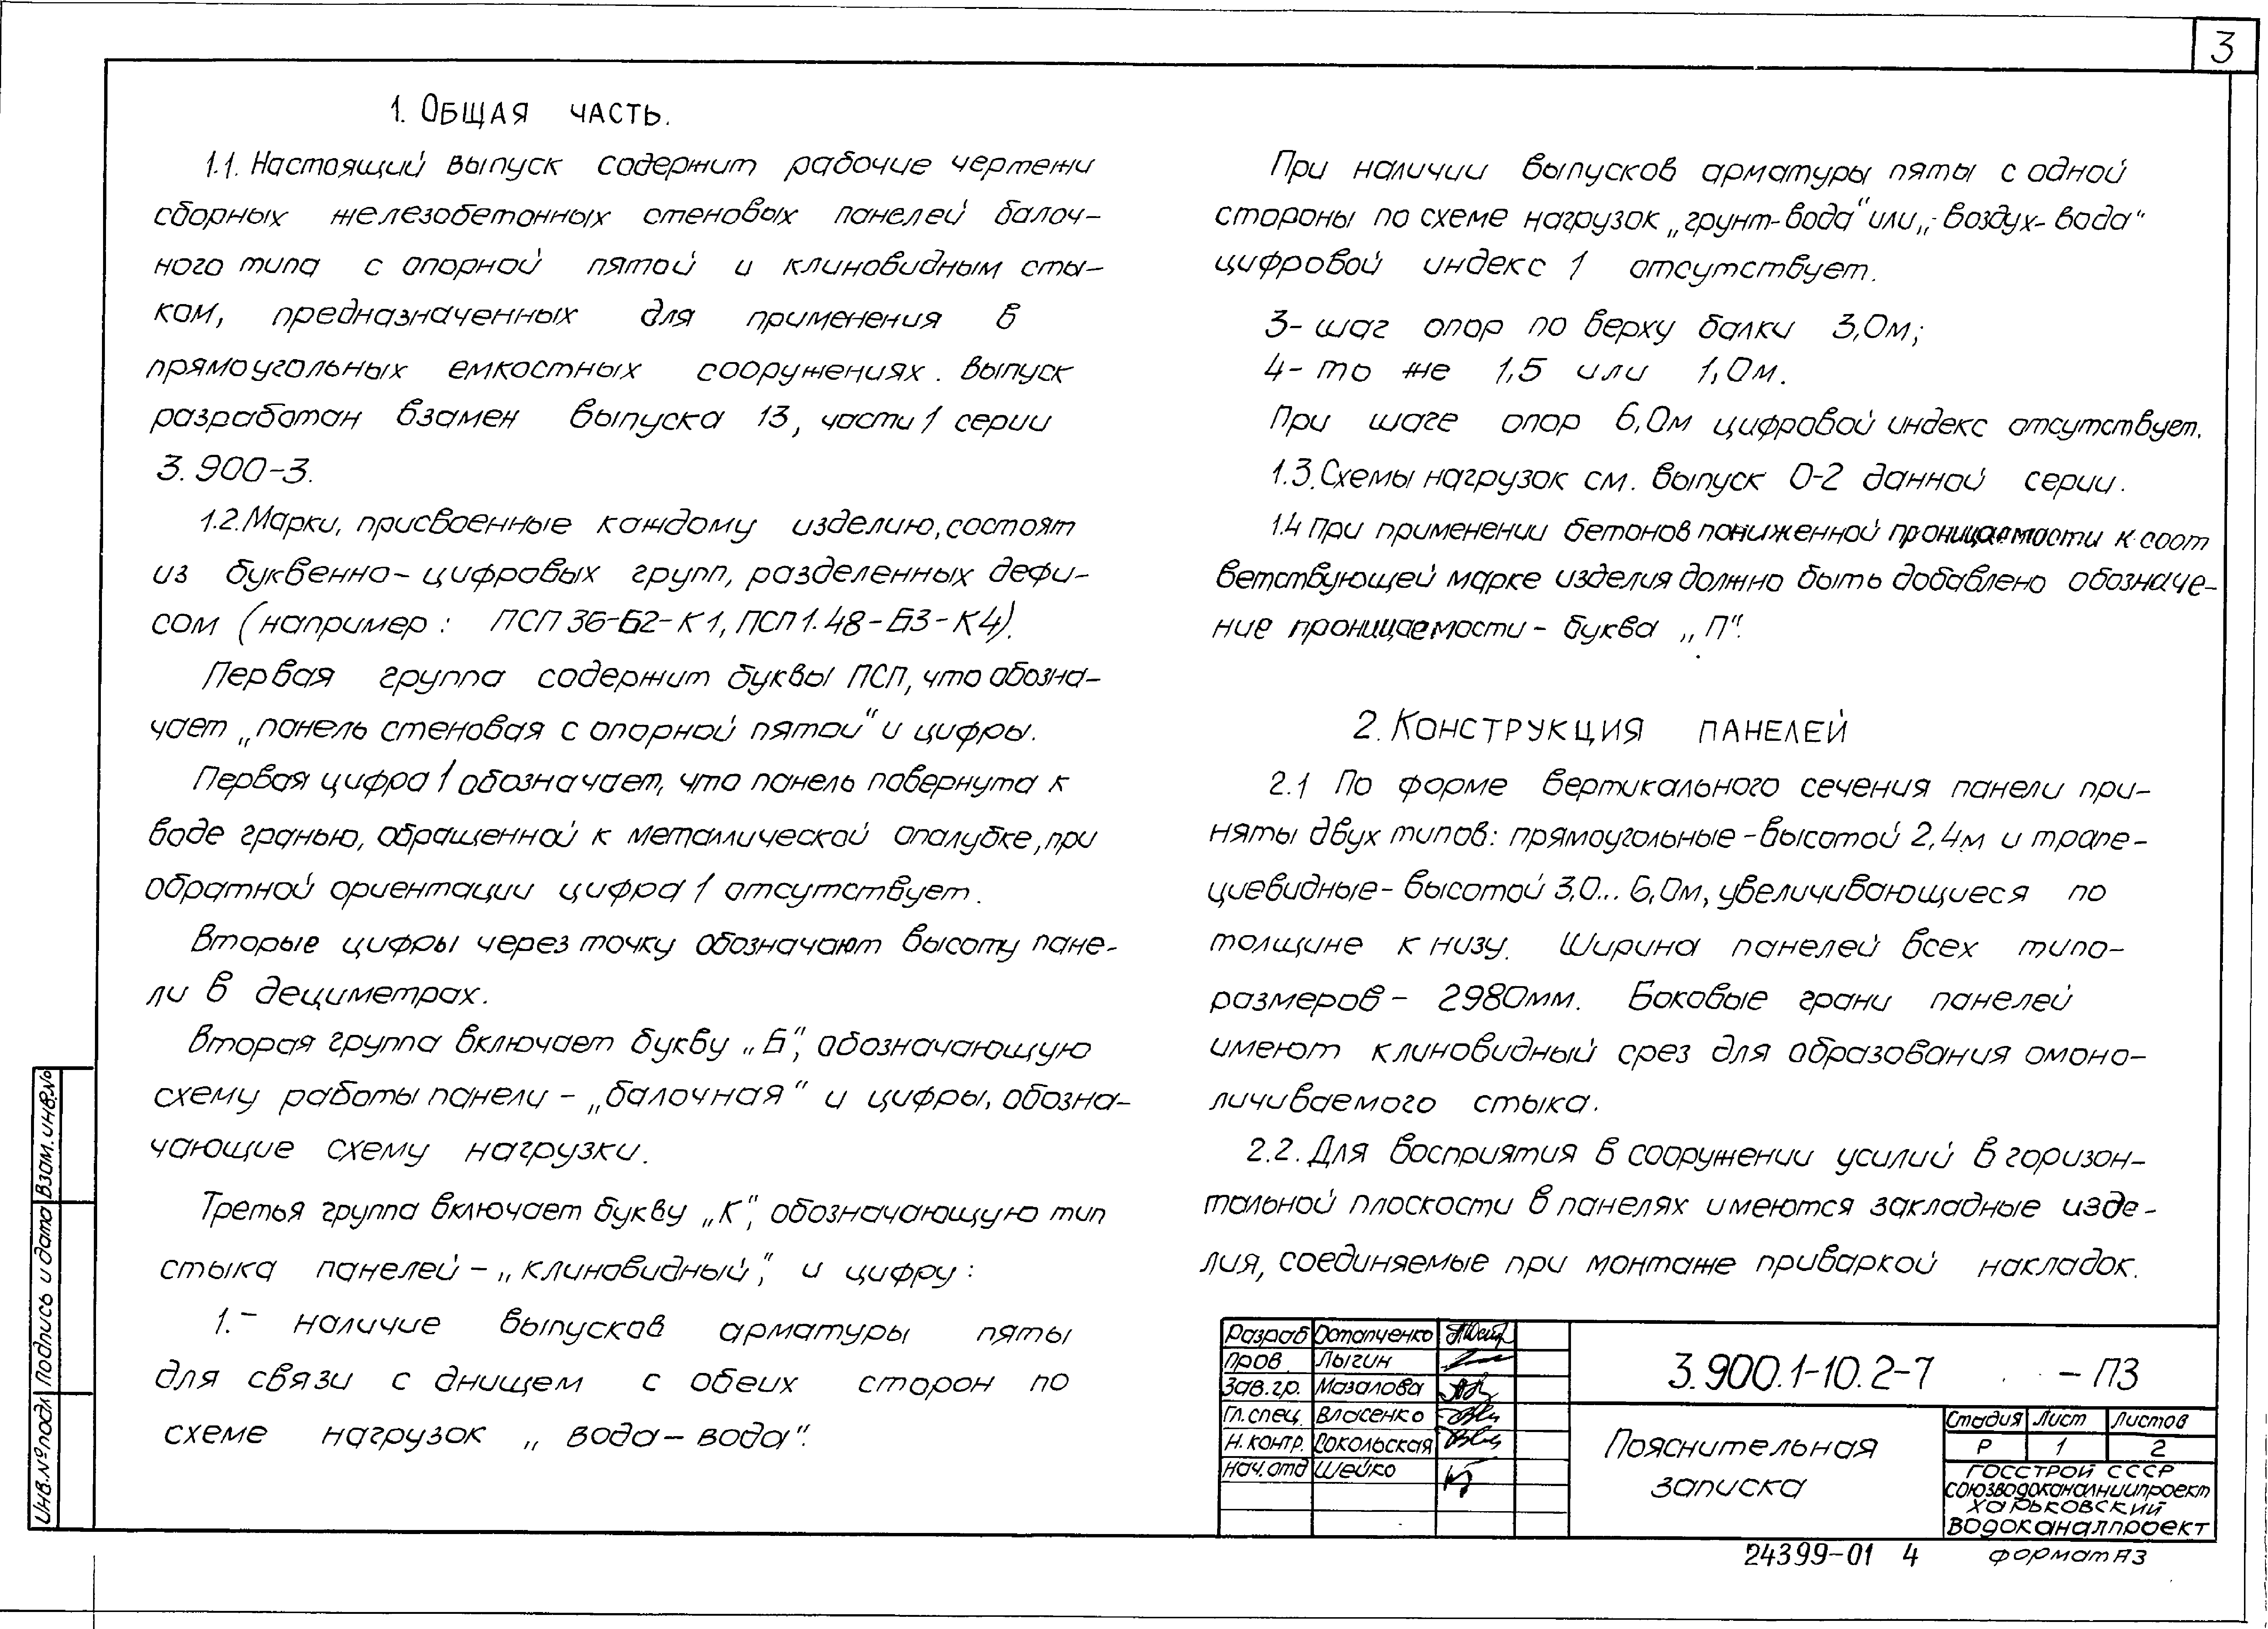 3
1. Общая часть.
1.1. Настоящий выпуск содержит рабочие чертежи
сборных железобетонных стеновых панелей балоч-
ного типа с опорной пятой и клиновидным сты-
ком, предназначенных для применения в
прямоугольных емкостных сооружениях. Выпуск
разработан взамен выпуска 13, части 1 серии
3.900-3.
1.2. Марки, присвоенные каждому изделию, состоят
из буквенно-цифровых групп, разделенных дефи-
сом (например: ПСП 36-Б2-К1, ПСП 1.48-Б3-К4).
Первая группа содержит буквы ПСП, что обозна-
чает „панель стеновая с опорной пятой" и цифры.
Первая цифра 1 обозначает, что панель повернута к
воде гранью, обращенной к металлической опалубке, при
обратной ориентации цифра 1 отсутствует.
Вторые цифры через точку обозначают высоту пане-
ли в дециметрах.
Вторая группа включает букву „Б", обозначающую
схему работы панели - „балочная" и цифры, обозна-
чающие схему нагрузки.
Третья группа включает букву „К", обозначающую тип
стыка панелей - „клиновидный", и цифру:
1.- наличие выпусков арматуры пяты
для связи с днищем с обеих сторон по
схеме нагрузок „вода-вода".
При наличии выпусков арматуры пяты с одной
стороны по схеме нагрузок „грунт-вода" или „воздух-вода"
цифровой индекс 1 отсутствует.
3- шаг опор по верху балки 3,0м;
4- то же 1,5 или 1,0м.
При шаге опор 6,0м цифровой индекс отсутствует.
1.3. Схемы нагрузок см. выпуск 0-2 данной серии.
1.4 При применении бетонов пониженной проницаемости к соот
ветствующей марке изделия должно быть добавлено обозначе-
ние проницаемости - буква „П".
2. Конструкция панелей
2.1 По форме вертикального сечения панели при-
няты двух типов: прямоугольные - высотой 2,4м и трапе-
циевидные - высотой 3,0... 6,0м, увеличивающиеся по
толщине к низу. Ширина панелей всех типо-
размеров - 2980мм. Боковые грани панелей
имеют клиновидный срез для образования омоно-
личиваемого стыка.
2.2. Для восприятия в сооружении усилий в горизон-
тальной плоскости в панелях имеются закладные изде-
лия, соединяемые при монтаже приваркой накладок.
Инв. № подл Подпись и дата Взам. инв. №
Разраб Остапченко
Пров. Лыгин
Зав. гр. Мазалова
Гл. спец. Власенко
Н. контр. Сокольская
Нач. отд Шейко
3.900.1-10.2-7 - ПЗ
Пояснительная
записка
Стадия Лист Листов
Р 1 2
ГОССТРОЙ СССР
СОЮЗВОДОКАНАЛНИИПРОЕКТ
ХАРЬКОВСКИЙ
ВОДОКАНАЛПРОЕКТ
24399-01 4
формат А3